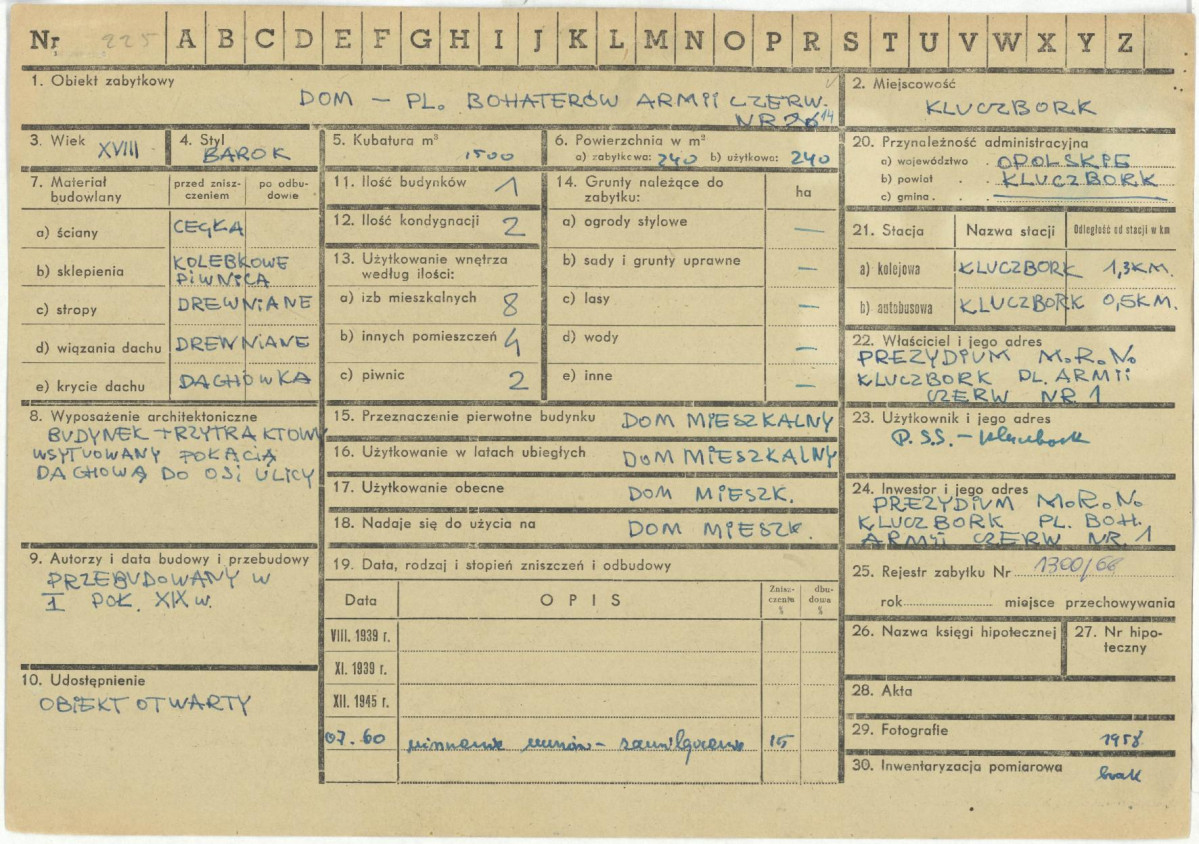 Nr 225 A B C D E F G H I J K L M N O P R S T U V W X Y Z
1. Obiekt zabytkowy
DOM – PL. BOHATERÓW ARMII CZERW.
NR 14
2. Miejscowość
KLUCZBORK
3. Wiek XVIII
4. Styl BAROK
5. Kubatura m³ 1500
6. Powierzchnia w m²
a) zabytkowa: 240 b) użytkowa: 240
7. Materiał budowlany
przed zniszczeniem
po odbudowie
a) ściany CEGŁA
b) sklepienia KOLEBKOWE PIWNICA
c) stropy DREWNIANE
d) wiązania dachu DREWNIANE
e) krycie dachu DACHÓWKA
8. Wyposażenie architektoniczne
BUDYNEK TRZYTRAKTOWY
USYTUOWANY POŁACIĄ
DACHOWĄ DO OSI ULICY
9. Autorzy i data budowy i przebudowy
PRZEBUDOWANY W
I POŁ. XIX w.
10. Udostępnienie
OBIEKT OTWARTY
11. Ilość budynków 1
12. Ilość kondygnacji 2
13. Użytkowanie wnętrza
według ilości:
a) izb mieszkalnych 8
b) innych pomieszczeń 4
c) piwnic 2
14. Grunty należące do
zabytku:
ha
a) ogrody stylowe —
b) sady i grunty uprawne —
c) lasy —
d) wody —
e) inne —
15. Przeznaczenie pierwotne budynku DOM MIESZKALNY
16. Użytkowanie w latach ubiegłych DOM MIESZKALNY
17. Użytkowanie obecne DOM MIESZK.
18. Nadaje się do użycia na DOM MIESZK.
19. Data, rodzaj i stopień zniszczeń i odbudowy
Data OPIS Zniszczenia % dbudowa %
VIII. 1939 r.
XI. 1939 r.
XII. 1945 r.
07.60 murów – zawilgocenie 15
20. Przynależność administracyjna
a) województwo . OPOLSKIE
b) powiat . . KLUCZBORK
c) gmina . . .
21. Stacja Nazwa stacji Odległość od stacji w km
a) kolejowa KLUCZBORK 1,3 KM.
b) autobusowa KLUCZBORK 0,5 KM.
22. Właściciel i jego adres
PREZYDIUM M.R.N.
KLUCZBORK PL. ARMII
CZERW NR 1
23. Użytkownik i jego adres
P.S.S. – Kluczbork
24. Inwestor i jego adres
PREZYDIUM M.R.N.
KLUCZBORK PL. BOH.
ARMII CZERW NR. 1
25. Rejestr zabytku Nr 1300/66
rok miejsce przechowywania
26. Nazwa księgi hipotecznej
27. Nr hipoteczny
28. Akta
29. Fotografie 1958
30. Inwentaryzacja pomiarowa brak